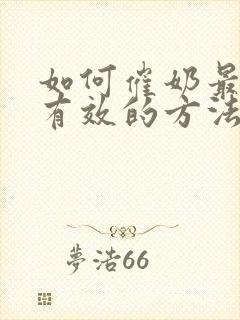 如何催奶最
有效的方法
夢浩66